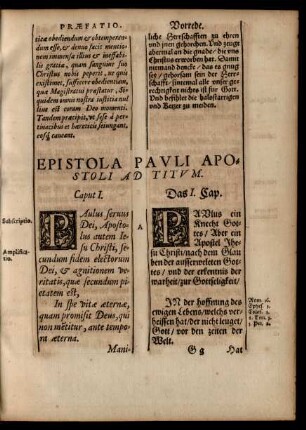 PRÆFATIO.
ticæ obediendum & obtemperandum
esse, & denuo facit mentionem
immensæ illius & ineffabilis
gratiæ, quam sanguine suo
Christus nobis peperit, ne quis
existimet, sufficere obedientiam,
quæ Magistratui præstatur. Siquidem
omnis nostra iustitia nullius
est coram Deo momenti.
Tandem præcipit, ne sese à pertinacibus
et hæreticis seiungant,
eosq; caueant.
Vorrede.
liche Herrschafften zu ehren
vnd jnen gehorchen. Vnd zeuget
abermal an die gnade / die vns
Christus erworben hat. Damit
niemand dencke / das es gnug
sey / gehorsam sein der Herrschafft
/ sintemal alle vnser gerechtigkeit
nichts ist für Gott.
Vnd befihlet die halsstarrigen
vnd Ketzer zu meiden.
EPISTOLA PAVLI APOSTOLI
AD TITVM.
Caput I.
Subscriptio.
PAulus seruus
Dei, Apostolus
autem Iesu
Christi, secundum
fidem electorum
Dei, & agnitionem veritatis,
quæ secundum pietatem
est,
Amplificatio.
In spe vitæ æternæ,
quam promisit Deus, qui
non mētitur, ante tempora
æterna.
Mani-
A
Das I. Cap.
PAVlus ein
Knecht Gottes
/ Aber ein
Apostel Jhesu
Christi / nach dem Glauben
der ausserweleten Gottes
/ vnd der erkenntnis der
warheit / zur Gottseligkeit /
JN der hoffnung des
ewigen Lebens / welchs verheissen
hat / der nicht leuget /
Gott / vor den zeiten der
Welt.
Rom. 16.
Ephes. 1.
Coloss. 1.
2. Tim. 1.
1. Pet. 1.
Gg
Hat